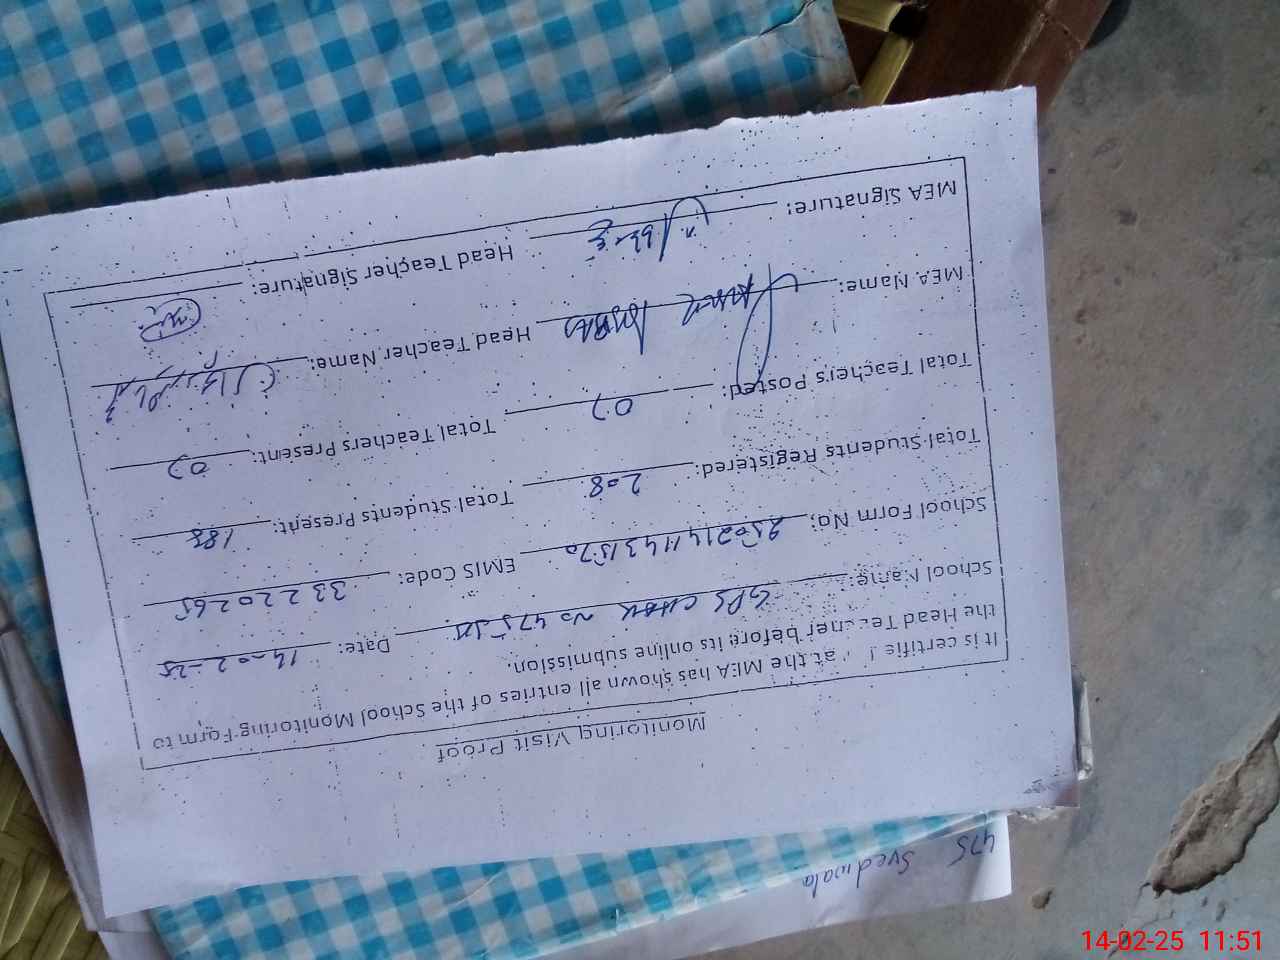 Monitoring Visit Proof
It is certified that the MEA has shown all entries of the School Monitoring Form to
the Head Teacher before its online submission.
School Name: GPS CHAK No 475 Date: 14-02-25
School Form No: EMIS Code: 33220265
Total Students Registered: 208 Total Students Present: 188
Total Teachers Posted: 07 Total Teachers Present: 07
MEA Name: Head Teacher Name:
MEA Signature: Head Teacher Signature:
475 Syedwala
14-02-25 11:51